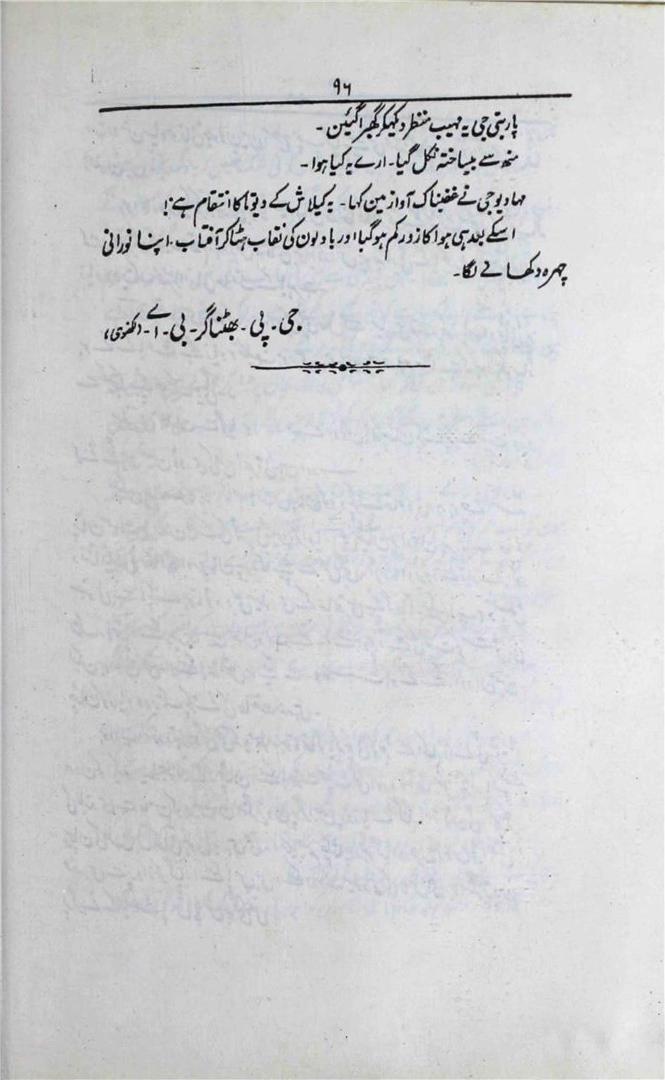 ۹۶
پاربتی جی یہ مہیب منظر دیکھکر گھبرا گئین ۔
منھ سے بیساختہ نکل گیا ۔ ارے یہ کیا ہوا ۔
مہادیو جی نے غضبناک آواز مین کہا ۔ یہ کیلاش کے دیوتا کا انتقام ہے!
اسکے بعد ہی ہوا کا زور کم ہو گیا اور بادلون کی نقاب ہٹا کر آفتاب ۔ اپنا نورانی
چہرہ دکھانے لگا ۔
جی ۔ پی ۔ بھٹناگر ۔ بی ۔ اے ۔ (لکھنوی)